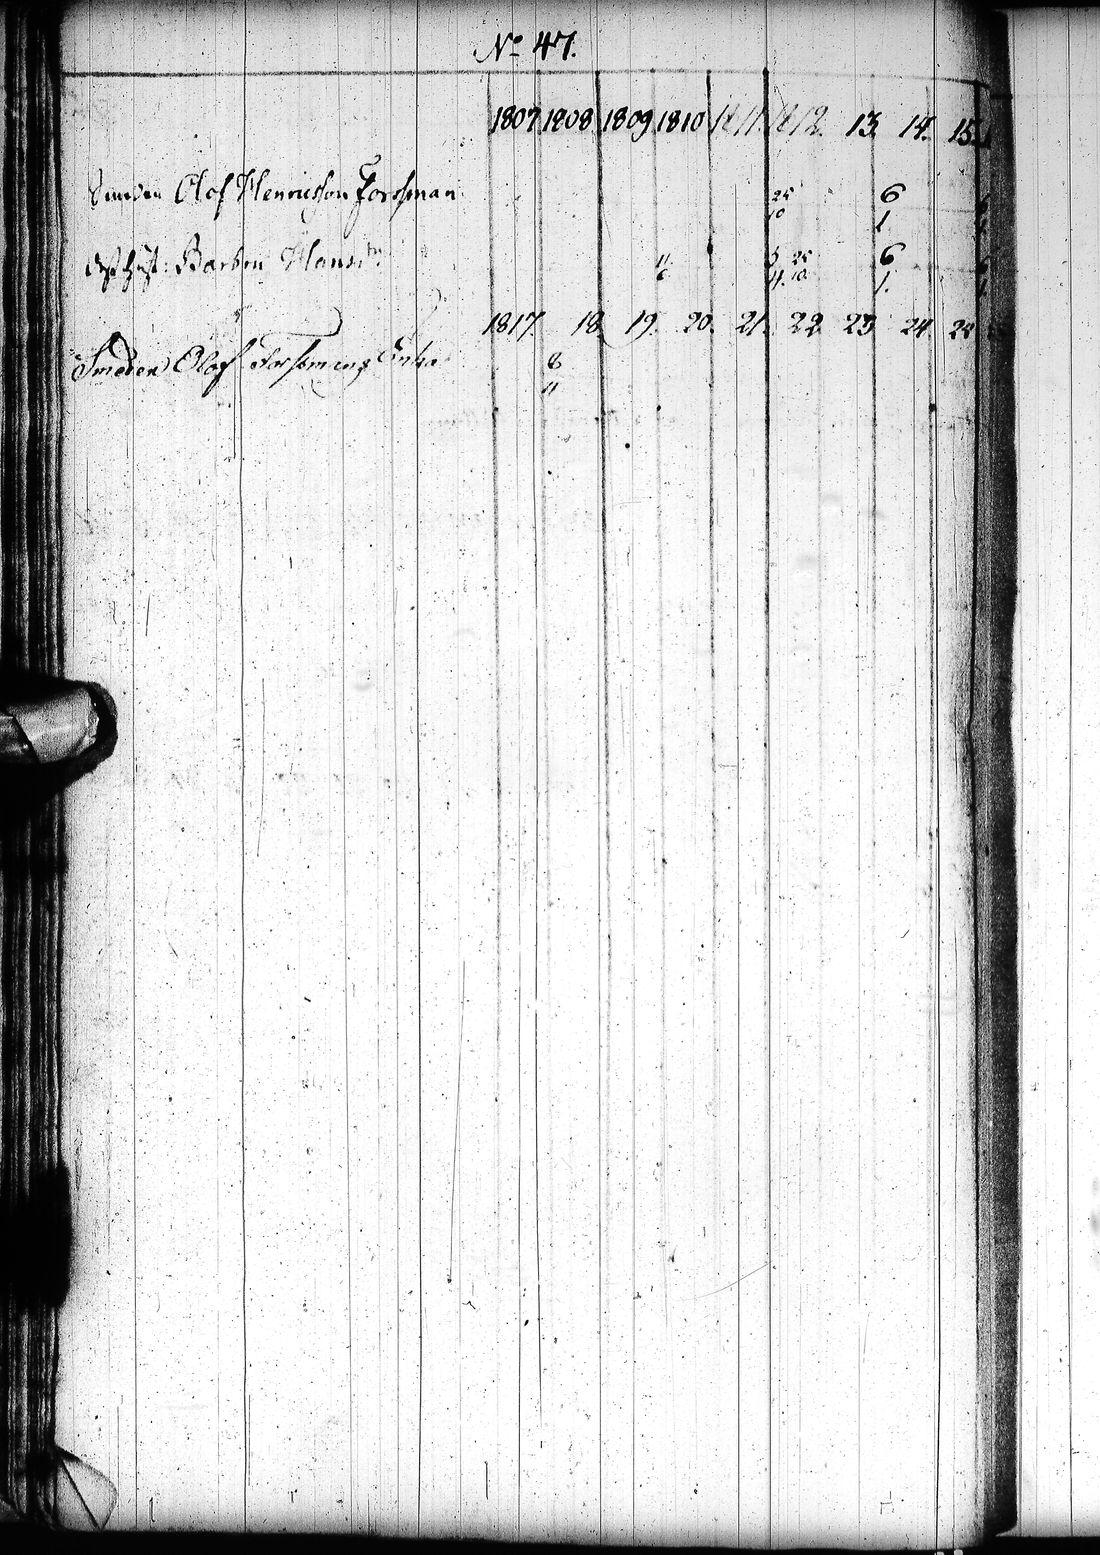 No 47.
1807 1808 1809 1810 1811. 1812. 13. 14. 15.
Smeden Olof Henricsson Forssman 25/10 6/1
Hust: Barbru Hansdtr 11/6 3/4 25/10 6/1.
1817. 18. 19. 20. 21. 22. 23. 24.
Smeden Olof Forssmans Enka 8/11